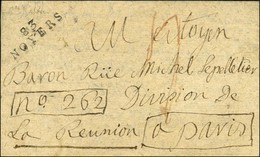 83
NOYERS
Au Citoyen
Baron Rüe Michel Lepelletier
No. 262 Division de
La Reunion à Paris